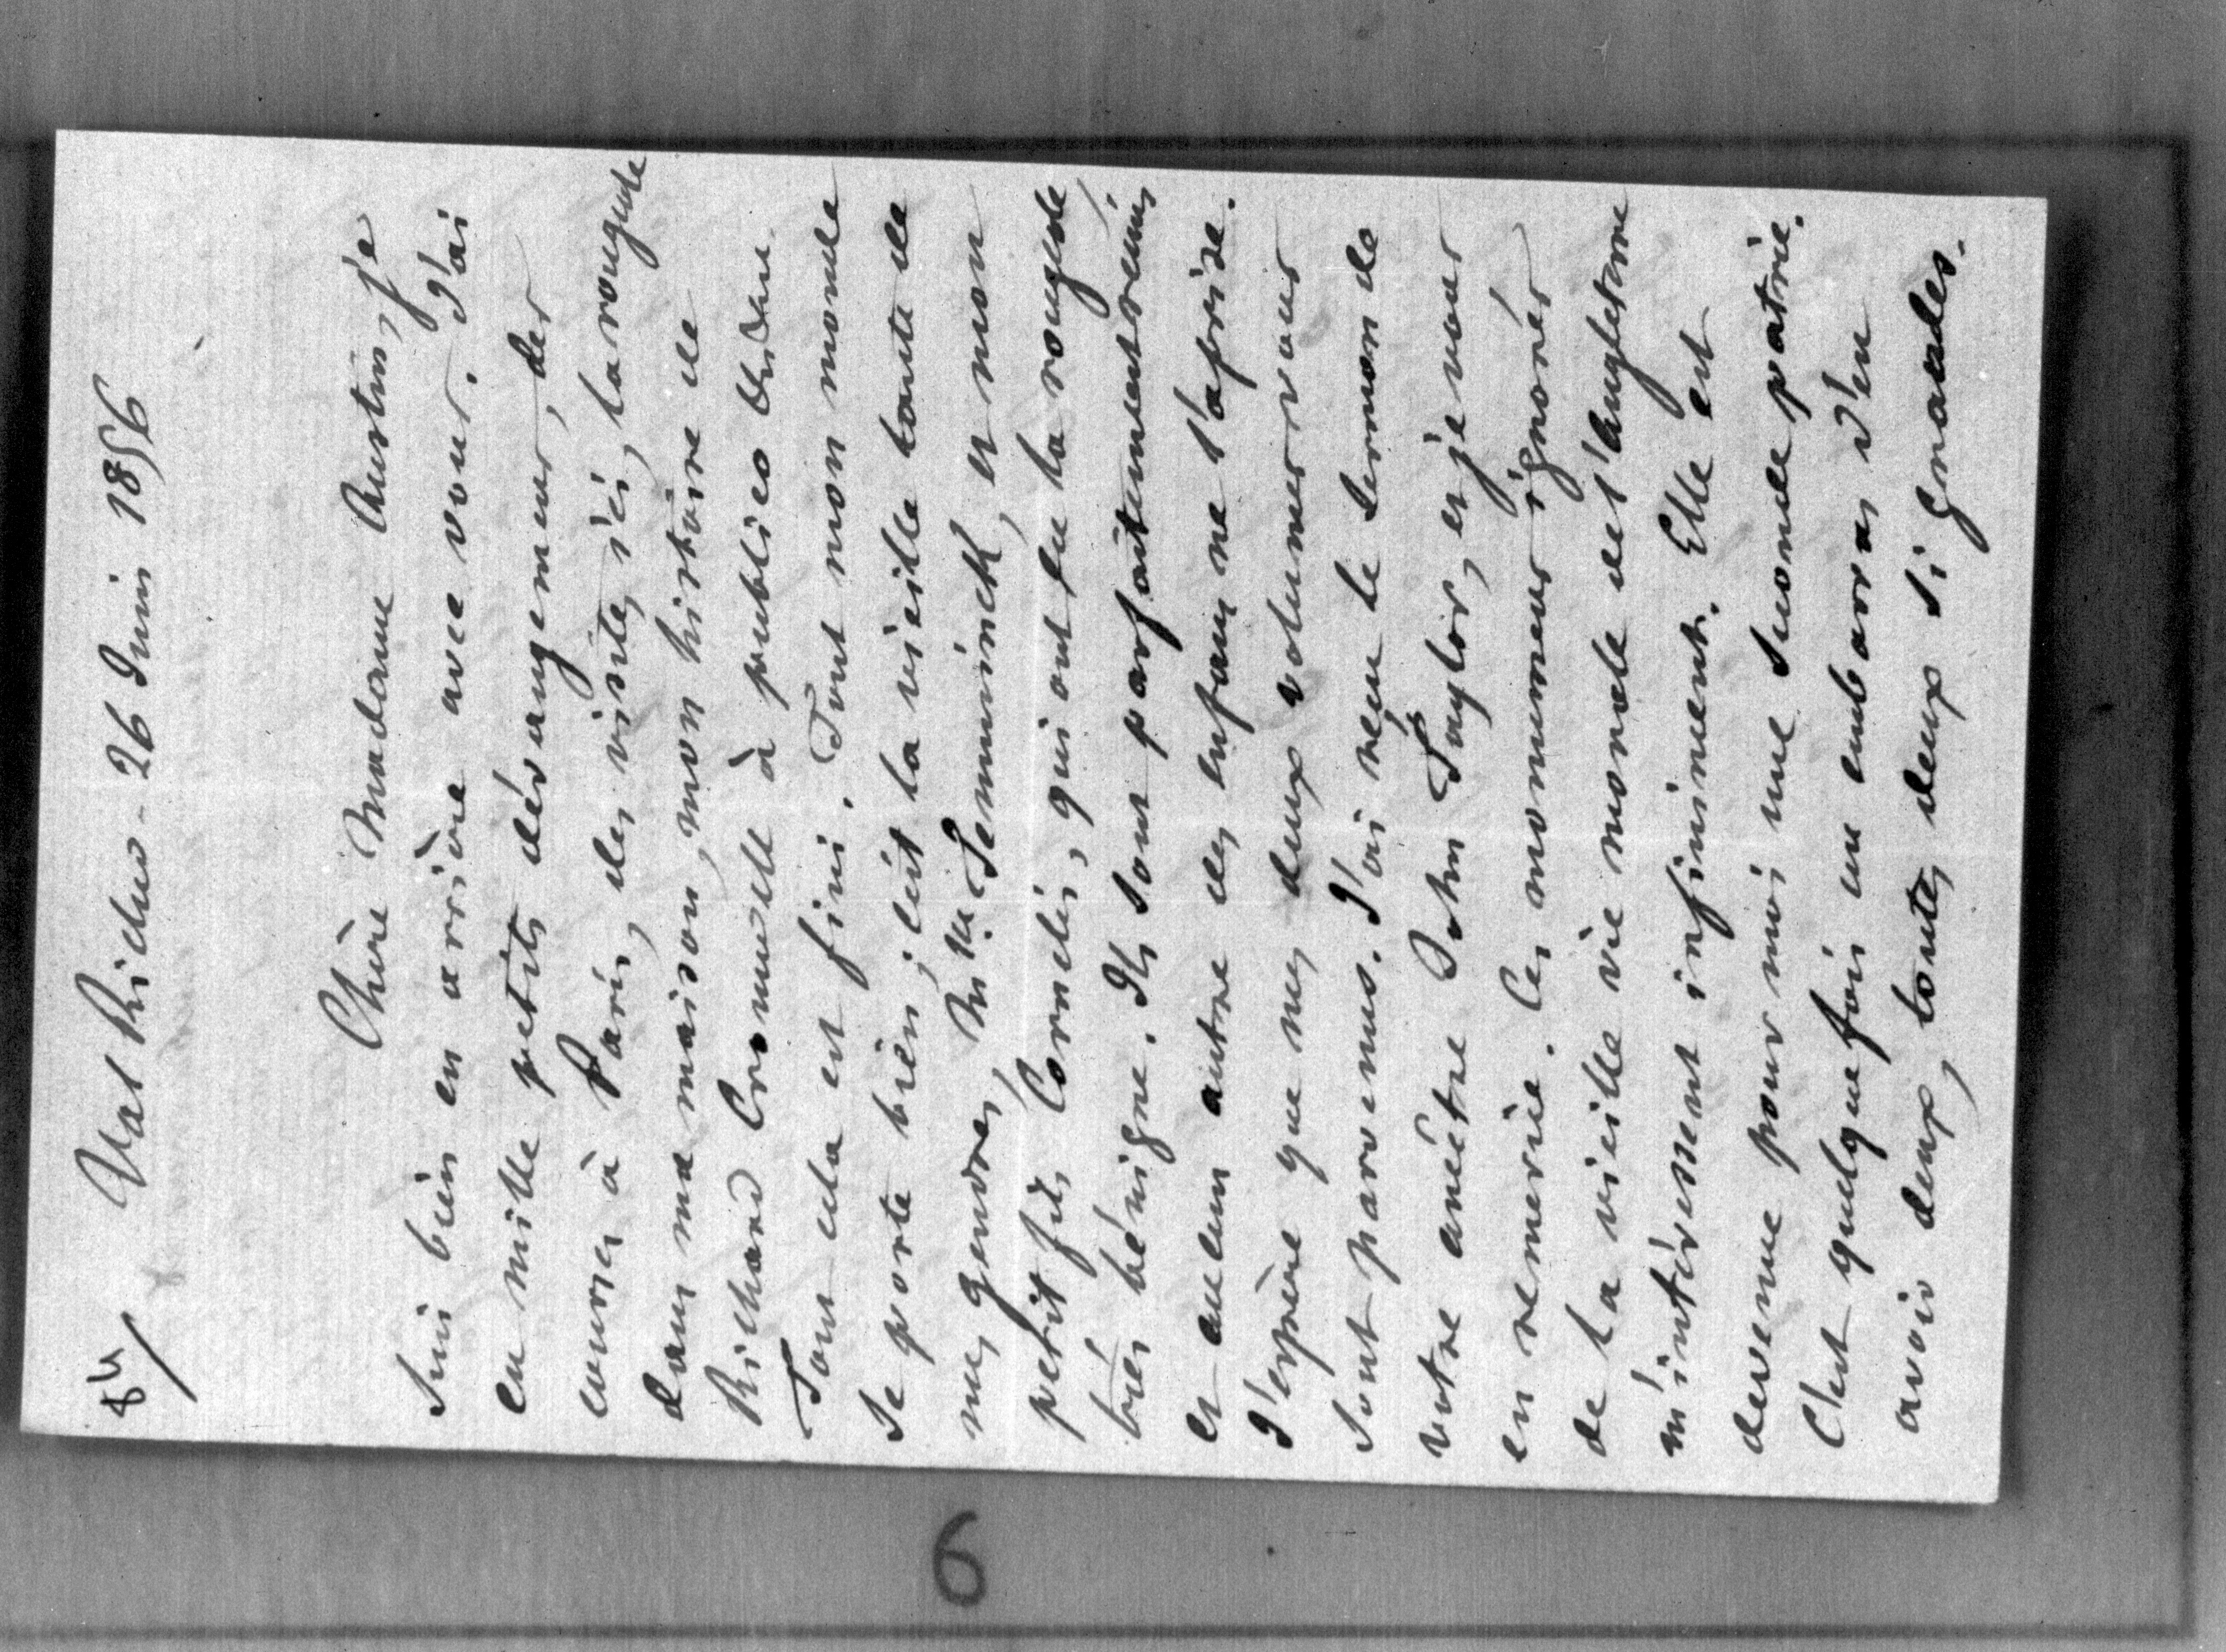 84/
Val Richer - 26 Juin 1856
Chère Madame Austin, je
suis bien en arrière avec vous. J'ai
eu mille petits dérangemens, des
courses à Paris, des visites ici, la rougeole
dans ma maison, mon histoire de
Richard Cromwell à publier
Tout cela est fini. Tout mon monde
se porte bien, soit la vieille tante de
mes gendres, Mlle Temminck, et mon
petit fils Cornélis, qui ont eu la rougeole,
bien bénigne. Ils sont parfaitement remis
et aucun autre des enfans ne l'a prise.
J'espère que mes deux volumes vous
sont parvenus. J'ai reçu le sermon de
votre ancêtre John Taylor, et je vous
en remercie. Ces monumens ignorés
de la vieille vie morale de l'Angleterre
m'intéressent infiniment. Elle est
devenue pour moi une seconde patrie.
C'est quelquefois un embarras d'en
avoir deux, toutes deux si grandes.
6